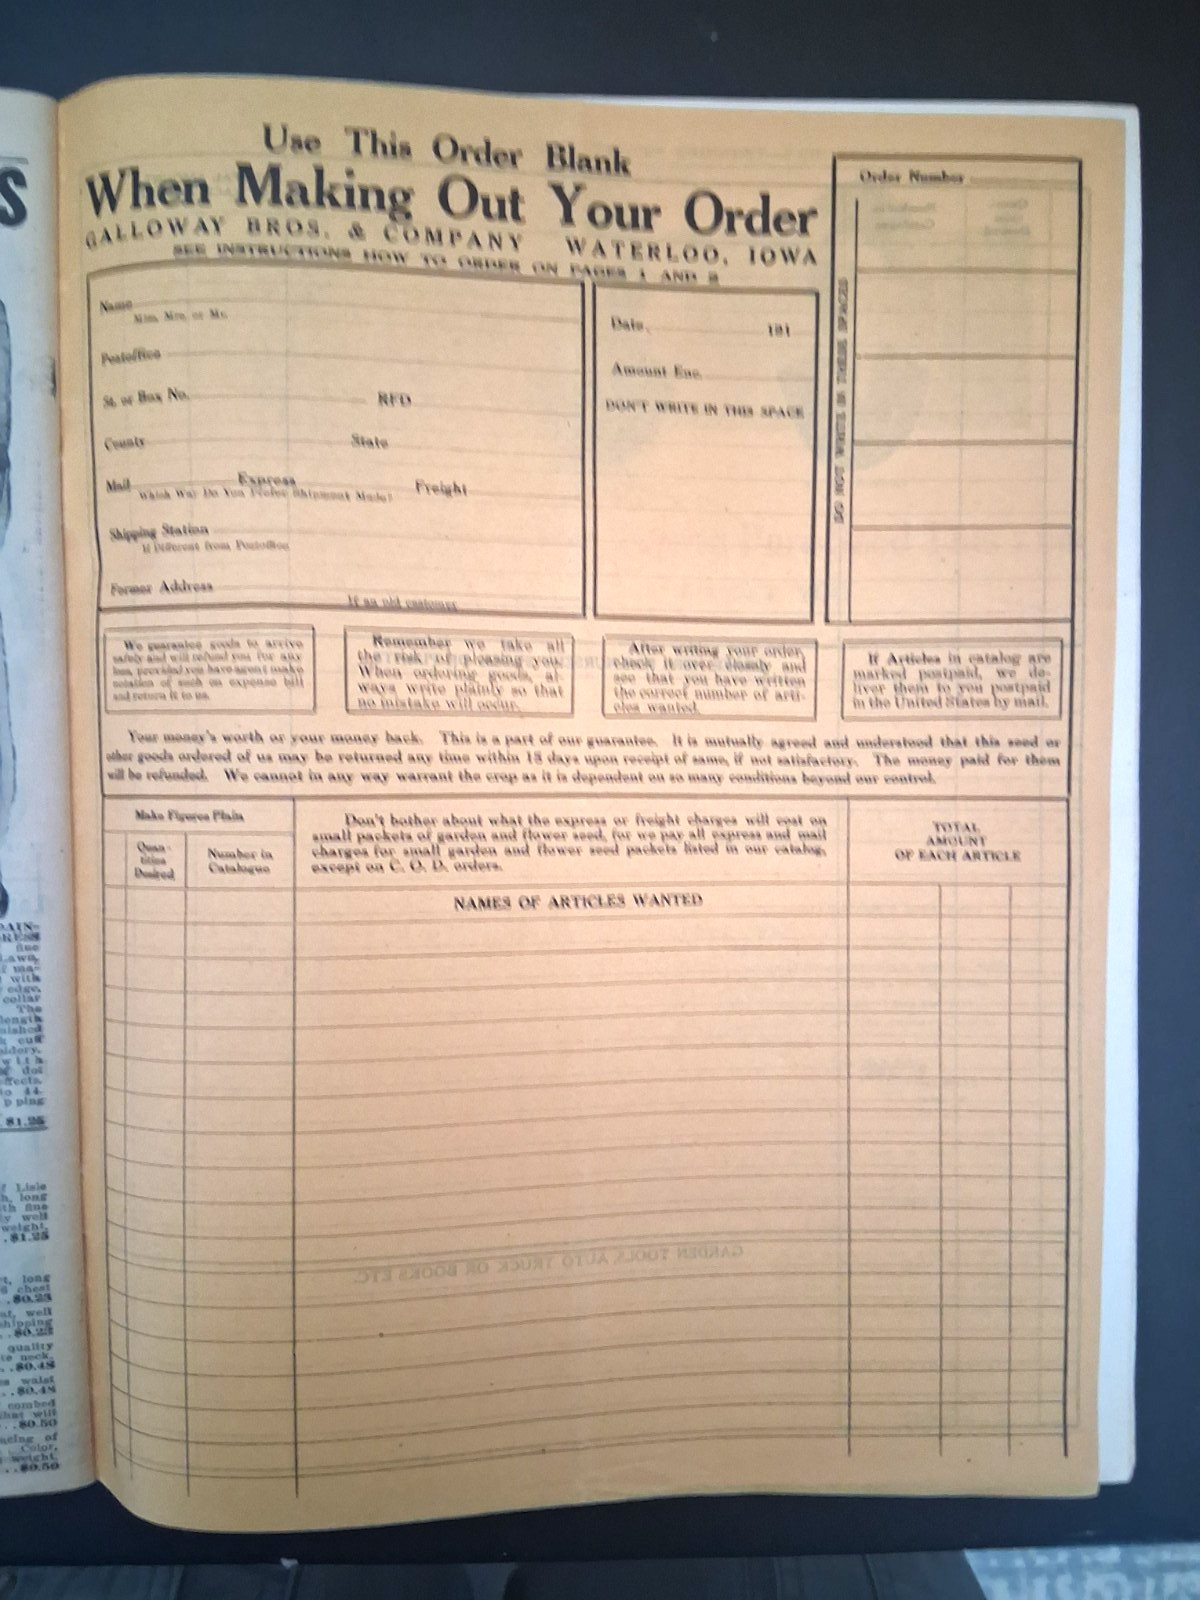 Use This Order Blank
When Making Out Your Order
GALLOWAY BROS. & COMPANY WATERLOO, IOWA
SEE INSTRUCTIONS HOW TO ORDER ON PAGES 1 AND 2
Order Number
DO NOT WRITE IN THESE SPACES
Name
Miss, Mrs. or Mr.
Postoffice
St. or Box No. RFD
County State
Mail Express Freight
Which Way Do You Prefer Shipment Made?
Shipping Station
If Different from Postoffice
Former Address
If an old customer
Date 191
Amount Enc.
DON'T WRITE IN THIS SPACE
We guarantee goods to arrive
safely and will refund you for any
loss, provided you have agent make
notation of such on expense bill
and return it to us.
Remember we take all
the risk of pleasing you.
When ordering goods, al-
ways write plainly so that
no mistake will occur.
After writing your order,
check it over closely and
see that you have written
the correct number of arti-
cles wanted.
If Articles in catalog are
marked postpaid, we de-
liver them to you postpaid
in the United States by mail.
Your money's worth or your money back. This is a part of our guarantee. It is mutually agreed and understood that this seed or
other goods ordered of us may be returned any time within 15 days upon receipt of same, if not satisfactory. The money paid for them
will be refunded. We cannot in any way warrant the crop as it is dependent on so many conditions beyond our control.
Make Figures Plain
Quan-
tities
Desired
Number in
Catalogue
Don't bother about what the express or freight charges will cost on
small packets of garden and flower seed, for we pay all express and mail
charges for small garden and flower seed packets listed in our catalog,
except on C. O. D. orders.
NAMES OF ARTICLES WANTED
TOTAL
AMOUNT
OF EACH ARTICLE
GARDEN TOOLS, AUTO TRUCK OR BOOKS ETC.
S
fine
Lawn,
of ma-
with
edge,
collar
The
length
cuff
with
of dot
effects.
to 44.
$1.25
of Lisle
long
fine
well
weight,
.$1.25
long
chest
..$0.25
well
shipping
..$0.25
quality
neck,
..$0.48
waist
..$0.48
combed
that will
..$0.50
Color,
weight,
..$0.50